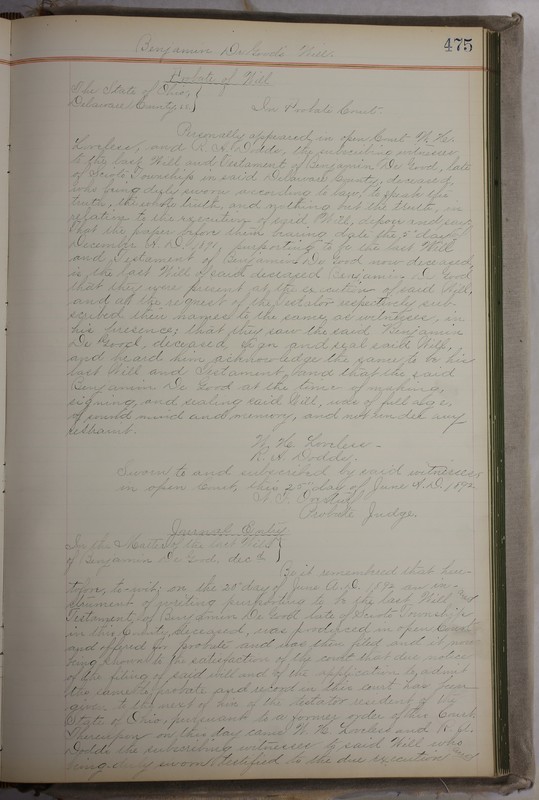 Benjamin De Good's Will.
475
Probate of Will
The State of Ohio,
Delaware County ss
In Probate Court.
Personally appeared in open Court W. H.
Loveless, and R. A. Dodds, the subscribing witnesses
to the last Will and Testament of Benjamin De Good, late
of Scioto Township in said Delaware County, deceased,
who being duly sworn according to law, to speak the
truth, the whole truth, and nothing but the truth, in
relation to the execution of said Will, depose and say,
that the paper before them bearing date the 5" day of
December A.D. 1891, purporting to be the last Will
and Testament of Benjamin De Good now deceased
is the last Will of said deceased Benjamin De Good
that they were present at the execution of said Will,
and at the request of the testator respectively sub-
scribed their names to the same as witnesses, in
his presence; that they saw the said Benjamin
De Good, deceased, sign and seal said Will,
and heard him acknowledge the same to be his
last Will and Testament, and that the said
Benjamin De Good at the time of making,
signing, and sealing said Will, was of full age,
of sound mind and memory, and not under any
restraint.
W. H. Loveless
R. A. Dodds.
Sworn to and subscribed by said witnesses
in open Court, this 25" day of June A.D. 1892
Probate Judge.
Journal Entry
In the Matter of the last Will
of Benjamin De Good, decd
Be it remembered that here-
tofore, to wit; on the 20" day of June A.D. 1892 an in-
strument of writing purporting to be the last Will and
Testament of Benjamin De Good late of Scioto Township
in this County, deceased, was produced in open Court
and offered for probate and was then filed and it now
being shown to the satisfaction of the court that due notice
of the filing of said will and of the application to admit
the same to probate and record in this court has been
given to the next of kin of the testator resident of the
State of Ohio, pursuant to a former order of this Court,
Thereupon on this day came W. H. Loveless and R. A.
Dodds the subscribing witnesses to said Will who
being duly sworn testified to the due execution and